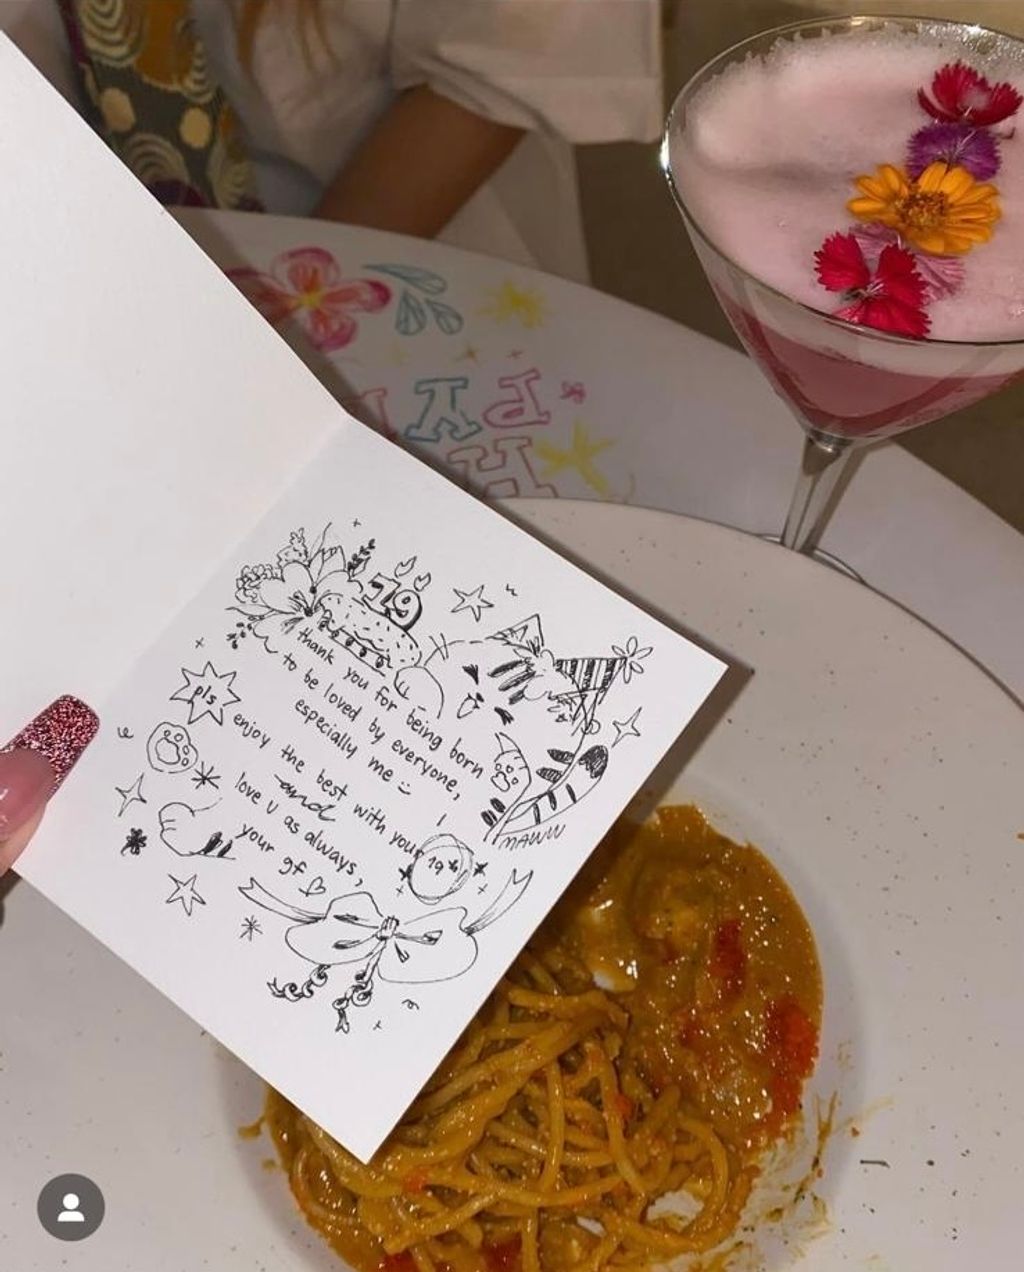 19
thank you for being born
to be loved by everyone,
especially me :)
pls enjoy the best with your 19th
and
love u as always,
your gf ♡
MAWW